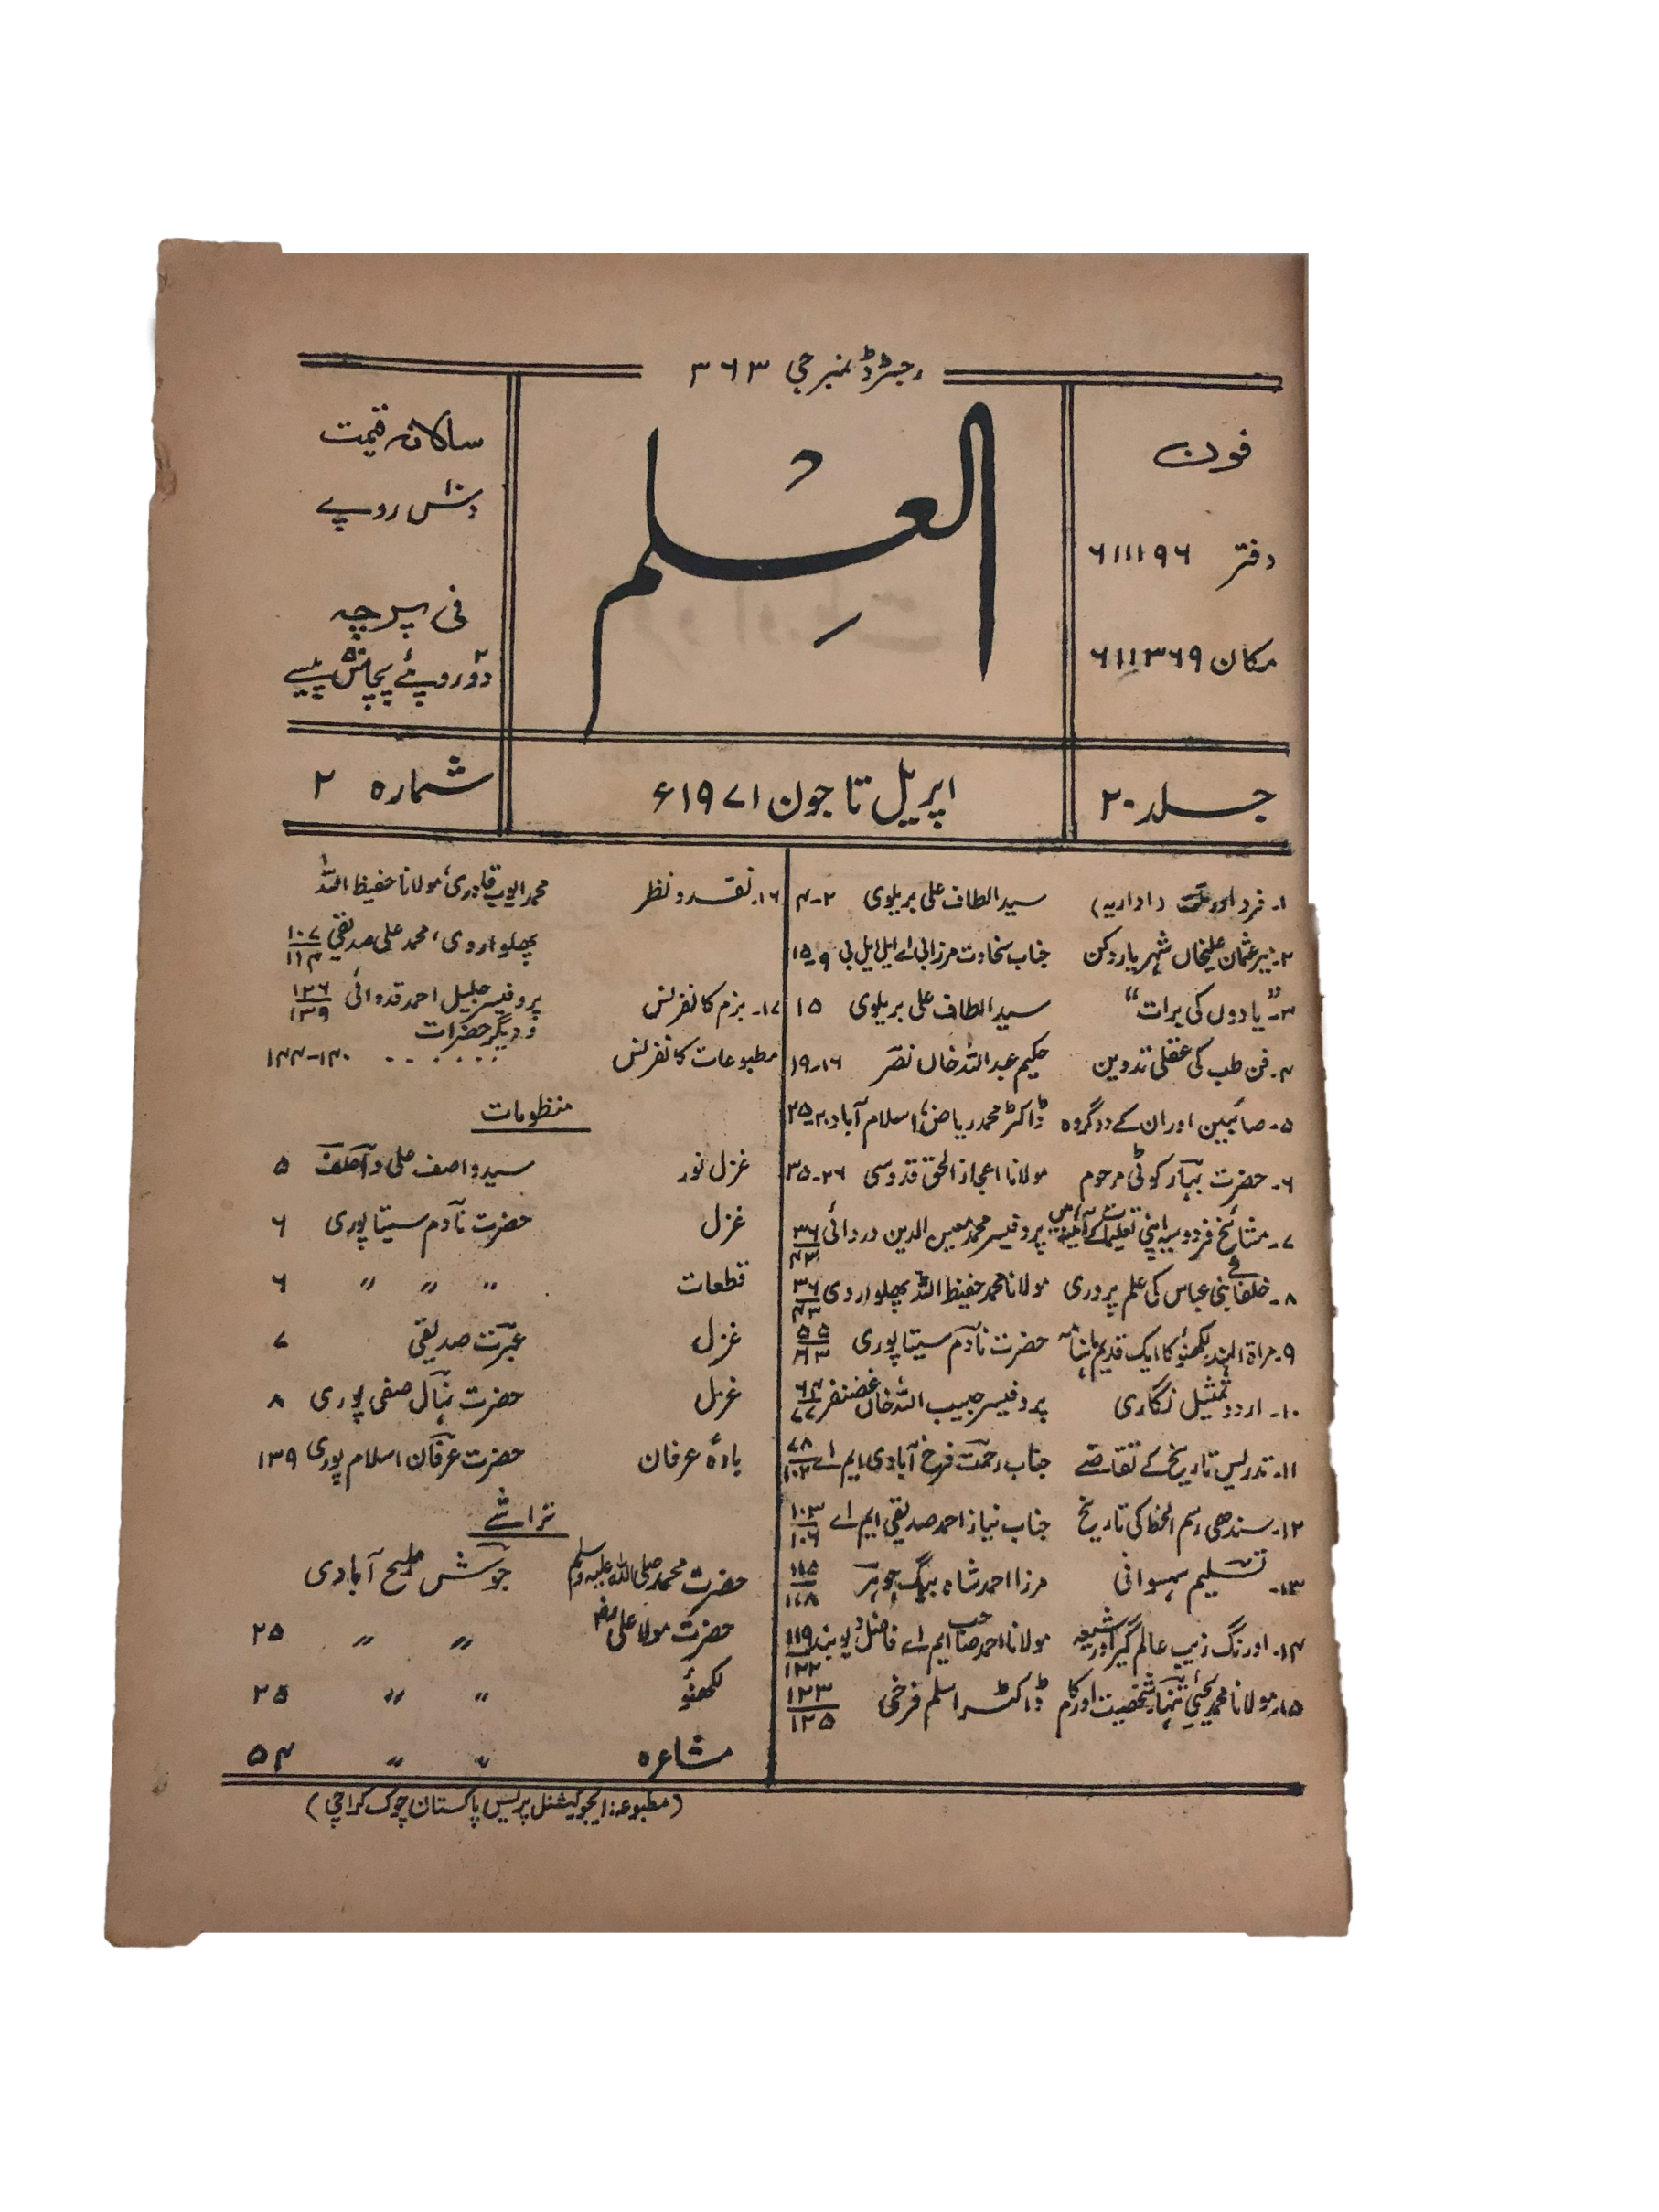 رجسٹرڈ نمبر جی ۳۶۳
فون
دفتر ۶۱۱۱۹۶
مکان ۶۱۱۳۶۹
العلم
سالانہ قیمت
دس ۱۰ روپے
فی پرچہ
دو روپئے پچاس پیسے
جلد ۲۰
اپریل تا جون ۱۹۷۱ء
شمارہ ۲
۱۔ فرد اور ملت (اداریہ) سید الطاف علی بریلوی ۲-۴
۲۔ میر عثمان علیخاں شہریار دکن جناب سخاوت مرزا بی اے ایل ایل بی ۹-۱۵
۳۔ "یادوں کی برات" سید الطاف علی بریلوی ۱۵
۴۔ فن طب کی عقلی تدوین حکیم عبداللہ خاں نصر ۱۶-۱۹
۵۔ صائبین اور ان کے دو گروہ ڈاکٹر محمد ریاض، اسلام آباد ۲۰-۲۵
۶۔ حضرت بہار کوٹی مرحوم مولانا اعجاز الحق قدوسی ۲۶-۳۵
۷۔ مشائخ فردوسیہ اپنی تعلیمات کے آئینہ میں پروفیسر محمد معین الدین دردائی ۳۶/۴۳
۸۔ خلفائے بنی عباس کی علم پروری مولانا محمد حفیظ اللہ پھلواروی ۳۶/۴۳
۹۔ مراۃ الہند لکھنؤ کا ایک قدیم ماہنامہ حضرت نادم سیتاپوری ۵۵/۶۳
۱۰۔ اردو تمثیل نگاری پروفیسر حبیب اللہ خاں غضنفر ۶۴/۷۷
۱۱۔ تدریس تاریخ کے تقاضے جناب رحمت فرخ آبادی ایم اے ۷۸/۱۰۲
۱۲۔ سندھی رسم الخط کی تاریخ جناب نیاز احمد صدیقی ایم اے ۱۰۳/۱۰۶
۱۳۔ تسلیم سہسوانی مرزا احمد شاہ بیگ جوہر ۱۱۵/۱۱۸
۱۴۔ اورنگ زیب عالم گیر اور شیعہ مولانا احمد صاحب ایم اے فاضل دیوبند ۱۱۹/۱۲۲
۱۵۔ مولانا محمد یحییٰ تنہا، شخصیت اور کام ڈاکٹر اسلم فرخی ۱۲۳/۱۲۵
۱۶۔ نقد و نظر محمد ایوب قادری، مولانا حفیظ اللہ
پھلواروی، محمد علی صدیقی ۱۰۷/۱۱۴
۱۷۔ بزم کانفرنس پروفیسر جلیل احمد قدوائی ۱۲۶/۱۳۹
و دیگر حضرات
مطبوعات کانفرنس ۱۴۰-۱۴۴
منظومات
غزل نور سید واصف علی واصف ۵
غزل حضرت نادم سیتاپوری ۶
قطعات " " " ۶
غزل عبرت صدیقی ۷
غزل حضرت نہال صفی پوری ۸
بادۂ عرفان حضرت عرفان اسلام پوری ۱۳۹
تراشے
حضرت محمد صلی اللہ علیہ وسلم جوش ملیح آبادی
حضرت مولا علی " " ۲۵
لکھنؤ " " ۲۵
مشاعرہ " " ۵۴
(مطبوعہ: ایجوکیشنل پریس پاکستان چوک کراچی)